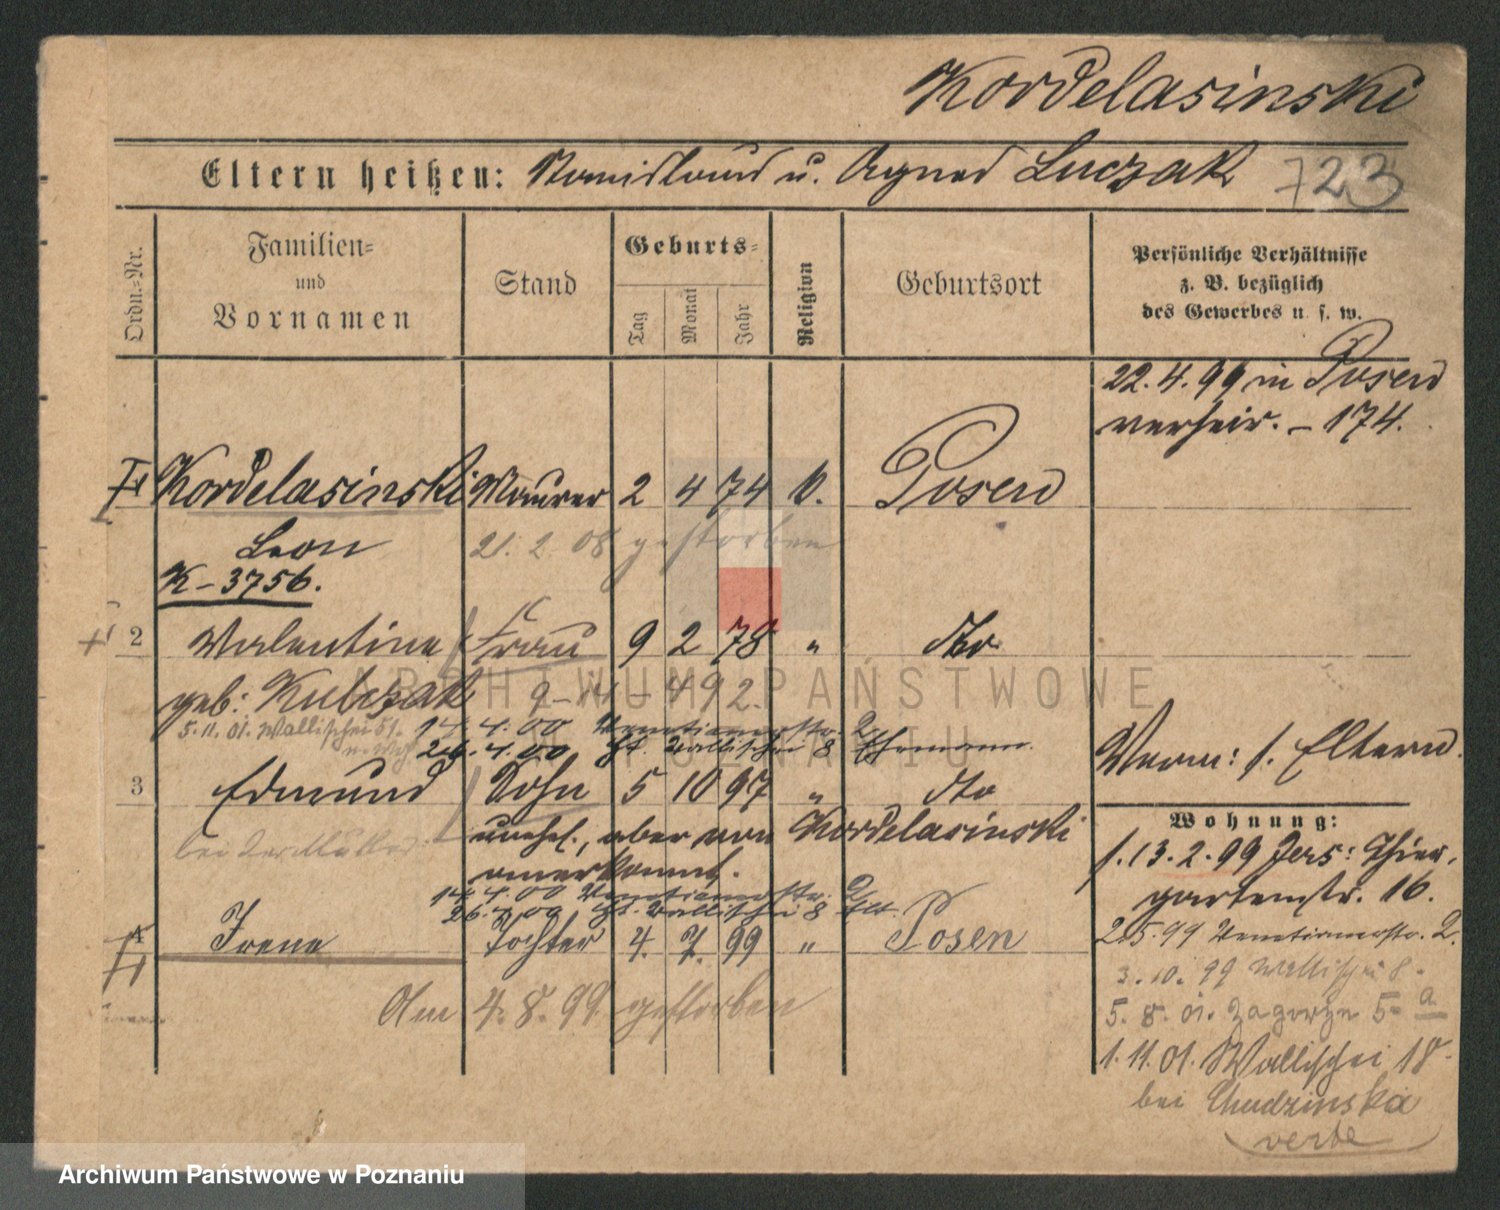 Kordelasinski
Eltern heißen: Stanislaus u. Agnes Luczak 723
Ordn.-Nr.
Familien-
und
Vornamen
Stand
Geburts-
Tag
Monat
Jahr
Religion
Geburtsort
Persönliche Verhältnisse
z. B. bezüglich
des Gewerbes u. s. w.
22.4.99 in Posen
verheir. – 174.
Kordelasinski Maurer 2 4 74 k. Posen
Leon 21. 2. 08 gestorben
K – 3756.
2 Valentine Frau 9 2 78 " dto
geb: Kubczak
5.11.01. Wallischei 51. 14. 4. 00 Venetianerstr. 2
26. 4. 00 Wallischei 8 Ehemann.
Verm: s. Eltern.
3 Edmund Sohn 5 10 97 " dto
unehel., aber von Kordelasinski
anerkannt.
14. 4. 00 Venetianerstr. 2
26. 4. 00 Wallischei 8 Elt.
4 Irene Tochter 4. 7. 99 " Posen
Am 4. 8. 99 gestorben
Wohnung:
s. 13. 2. 99 Jers: Thier-
gartenstr. 16.
2.5.99 Venetianerstr. 2.
3. 10. 99 Wallischei 8.
5. 8. 01. Zagorze 5 a
1. 11. 01. Wallischei 18.
bei Chudzinska
ARCHIWUM PAŃSTWOWE
W POZNANIU
Archiwum Państwowe w Poznaniu